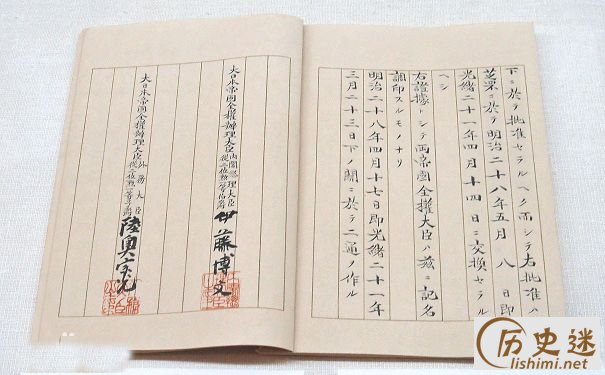 下ニ於テ批准セラルヘク而シテ右批准ハ
芝罘ニ於テ明治二十八年五月八日即
光緒二十一年四月十四日ニ交換セラル
ヘシ
右證據トシテ兩帝國全權大臣ハ茲ニ記名
調印スルモノナリ
明治二十八年四月十七日即光緒二十一年
三月二十三日下ノ關ニ於テ二通ヲ作ル
大日本帝國全權辦理大臣內閣總理大臣從二位勳一等伯爵伊藤博文
大日本帝國全權辦理大臣外務大臣從二位勳一等子爵陸奥宗光
历史迷
lishimi.net